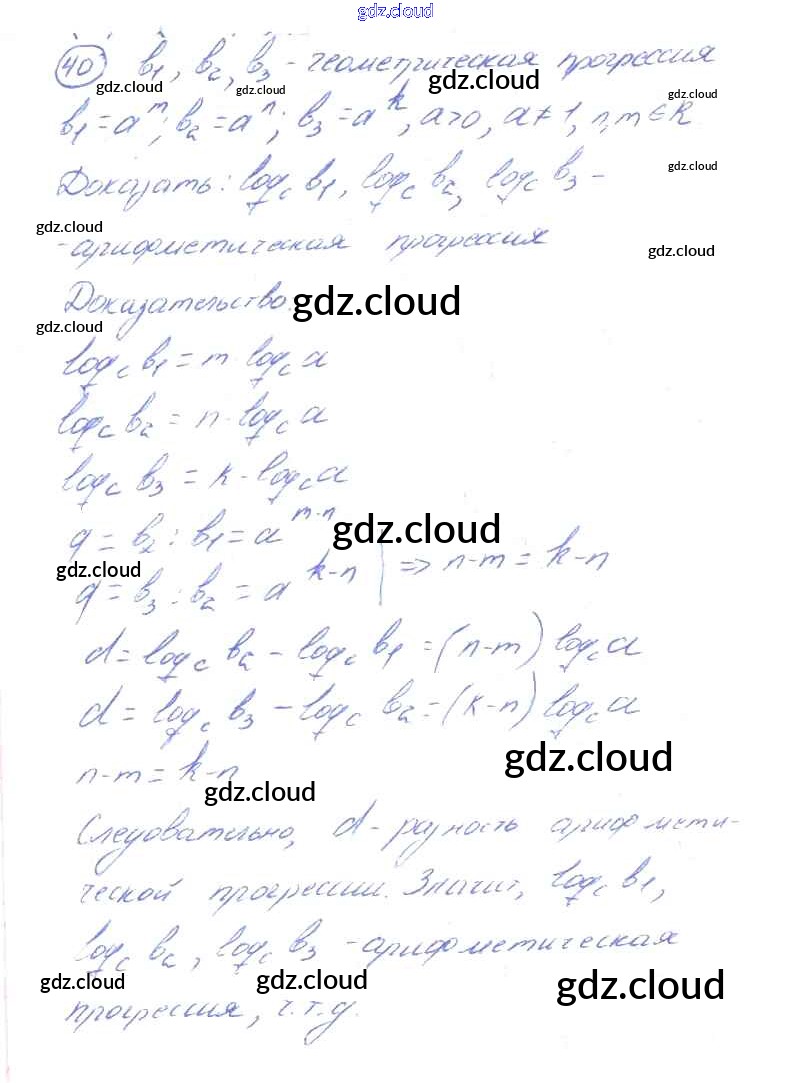 gdz.cloud
40 b₁, b₂, b₃ - геометрическая прогрессия
gdz.cloud gdz.cloud gdz.cloud gdz.cloud
b₁ = aᵐ; b₂ = aⁿ; b₃ = aᵏ, a>0, a≠1, n, m ∈ R
gdz.cloud
Доказать: log_c b₁, log_c b₂, log_c b₃ -
gdz.cloud
- арифметическая прогрессия
gdz.cloud
Доказательство. gdz.cloud
gdz.cloud
log_c b₁ = m log_c a
log_c b₂ = n · log_c a
log_c b₃ = k · log_c a
q = b₂ : b₁ = a^(m-n) gdz.cloud
gdz.cloud
q = b₃ : b₂ = a^(k-n) | ⇒ n-m = k-n
d = log_c b₂ - log_c b₁ = (n-m) log_c a
d = log_c b₃ - log_c b₂ = (k-n) log_c a
gdz.cloud
n-m = k-n
gdz.cloud
Следовательно, d - разность арифмети-
ческой прогрессии. Значит, log_c b₁,
log_c b₂, log_c b₃ - арифметическая
gdz.cloud gdz.cloud gdz.cloud
прогрессия, ч.т.д.